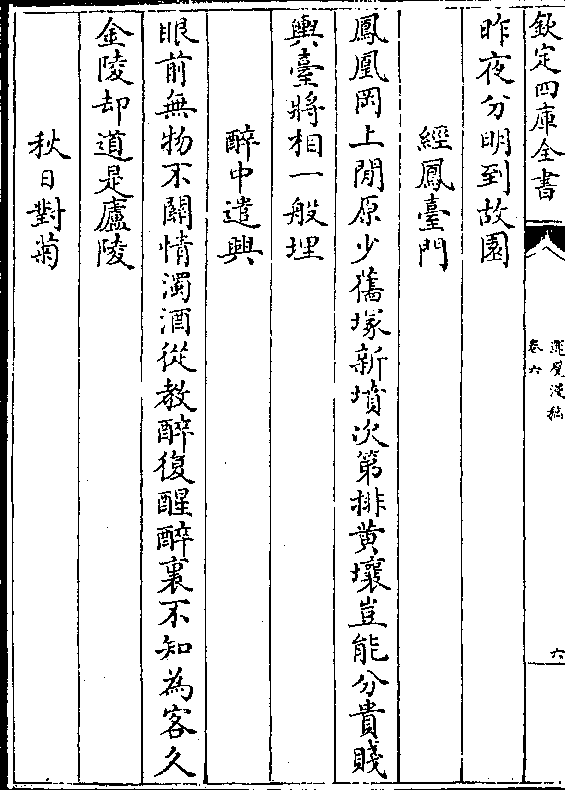 欽定四庫全書
運甓漫稿
卷六
六
昨夜分明到故園
經鳳臺門
鳳凰岡上閒原少舊塚新墳次第排黄壤豈能分貴賤
輿臺將相一般埋
醉中遣興
眼前無物不關情濁酒從教醉復醒醉裏不知為客久
金陵却道是廬陵
秋日對菊